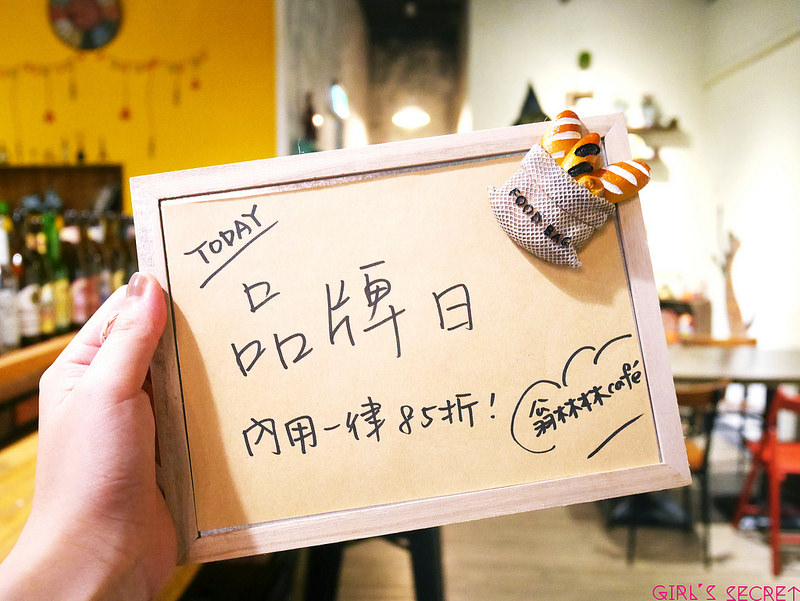 TODAY
品牌日
內用一律85折!
翁林林café
FOOD BAG
GIRL'S SECRET